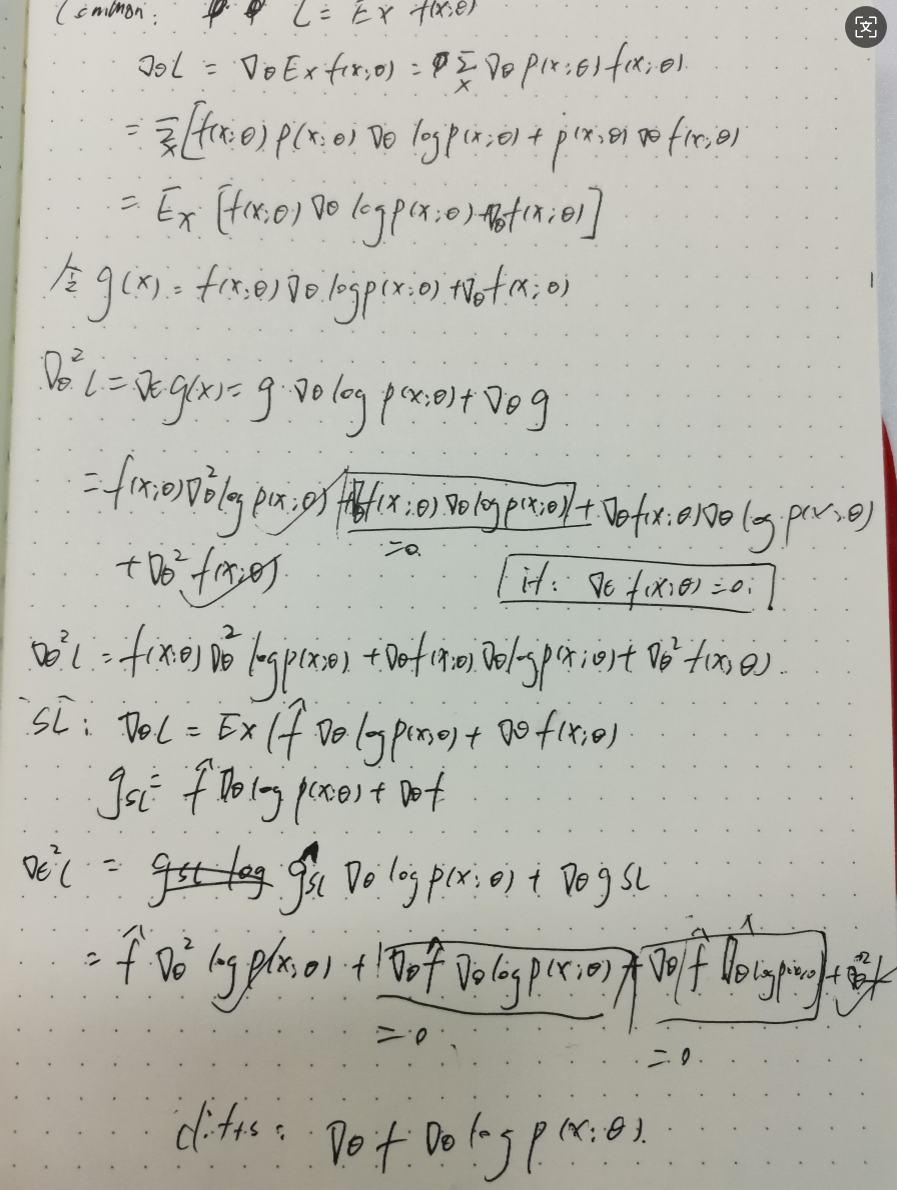 Common: L = Ex f(x;θ)
∇θL = ∇θ Ex f(x;θ) = Σx ∇θ p(x;θ) f(x;θ)
= Σx [f(x;θ) p(x;θ) ∇θ log p(x;θ) + p(x;θ) ∇θ f(x;θ)
= Ex [f(x;θ) ∇θ log p(x;θ) + ∇θ f(x;θ)]
令 g(x) = f(x;θ) ∇θ log p(x;θ) + ∇θ f(x;θ)
∇θ² L = ∇θ g(x) = g · ∇θ log p(x;θ) + ∇θ g
= f(x;θ) ∇θ² log p(x;θ) + ∇θ f(x;θ) ∇θ log p(x;θ) + ∇θ f(x;θ) ∇θ log p(x;θ)
= 0.
+ ∇θ² f(x;θ)
if: ∇θ f(x;θ) = 0.
∇θ² L = f(x;θ) ∇θ² log p(x;θ) + ∇θ f(x;θ) ∇θ log p(x;θ) + ∇θ² f(x;θ)
SL: ∇θ L = Ex ( f̂ ∇θ log p(x;θ) + ∇θ f(x;θ)
gSL = f̂ ∇θ log p(x;θ) + ∇θ f
∇θ² L = ĝSL ∇θ log p(x;θ) + ∇θ g SL
= f̂ ∇θ² log p(x;θ) + ∇θ f̂ ∇θ log p(x;θ) + ∇θ f̂ ∇θ log p(x;θ) + ∇θ² f
= 0
= 0.
∇θ f ∇θ log p(x;θ).